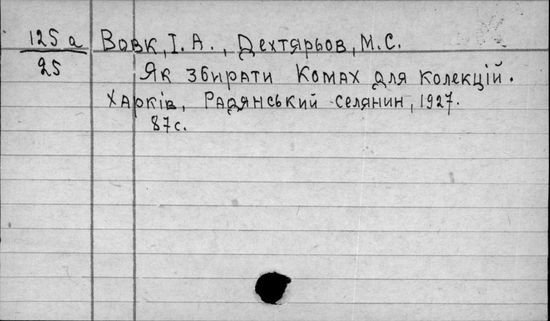 125а Вовк, І. А., Дехтярьов, М.С.
25
Як збирати комах для колекцій.
Харків, Радянський селянин, 1927.
87с.